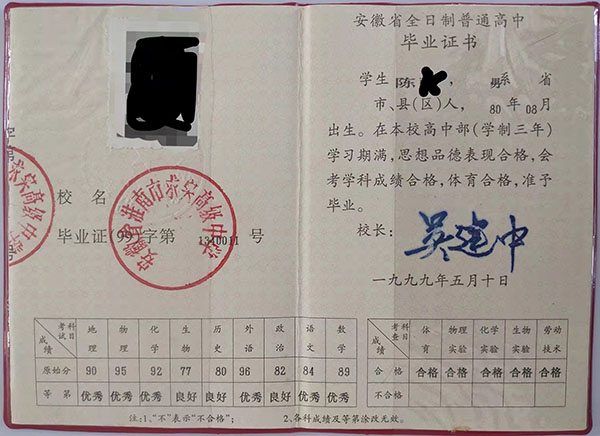 安徽省全日制普通高中
毕业证书
学生 陈 , 男 系 省
市、县(区)人, 80 年 08 月
出生。在本校高中部(学制三年)
学习期满,思想品德表现合格,会
考学科成绩合格,体育合格,准予
毕业。
校长: 吴建中
一九九九年五月十日
校 名
毕业证(99)字第 1310011 号
安徽省淮南市 高级中学
考试科目 成绩 地理 物理 化学 生物 历史 外语 政治 语文 数学
原始分 90 95 92 77 80 96 82 84 89
等 第 优秀 优秀 优秀 良好 良好 优秀 良好 优秀 优秀
考查科目 成绩 体育 物理实验 化学实验 生物实验 劳动技术
合 格 合格 合格 合格 合格 合格
不合格
注:1、“不”表示“不合格”; 2、各科成绩及等第涂改无效。